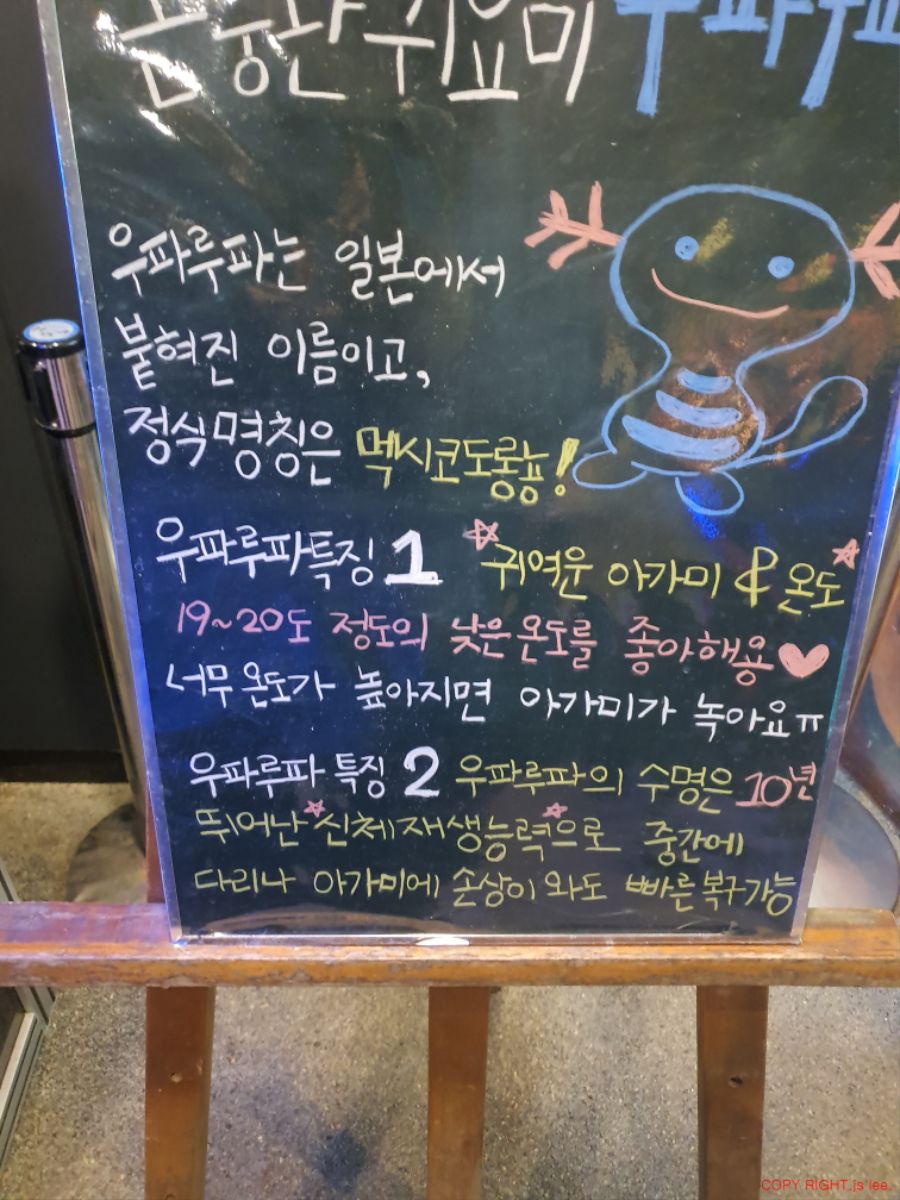 귀요미 우파루파
우파루파는 일본에서
붙혀진 이름이고,
정식명칭은 멕시코도롱뇽!
우파루파특징 1 귀여운 아가미 & 온도
19~20도 정도의 낮은온도를 좋아해용♥
너무 온도가 높아지면 아가미가 녹아요ㅠ
우파루파 특징 2 우파루파의 수명은 10년
뛰어난 신체재생능력으로 중간에
다리나 아가미에 손상이 와도 빠른복구가능
COPY RIGHT.js lee.